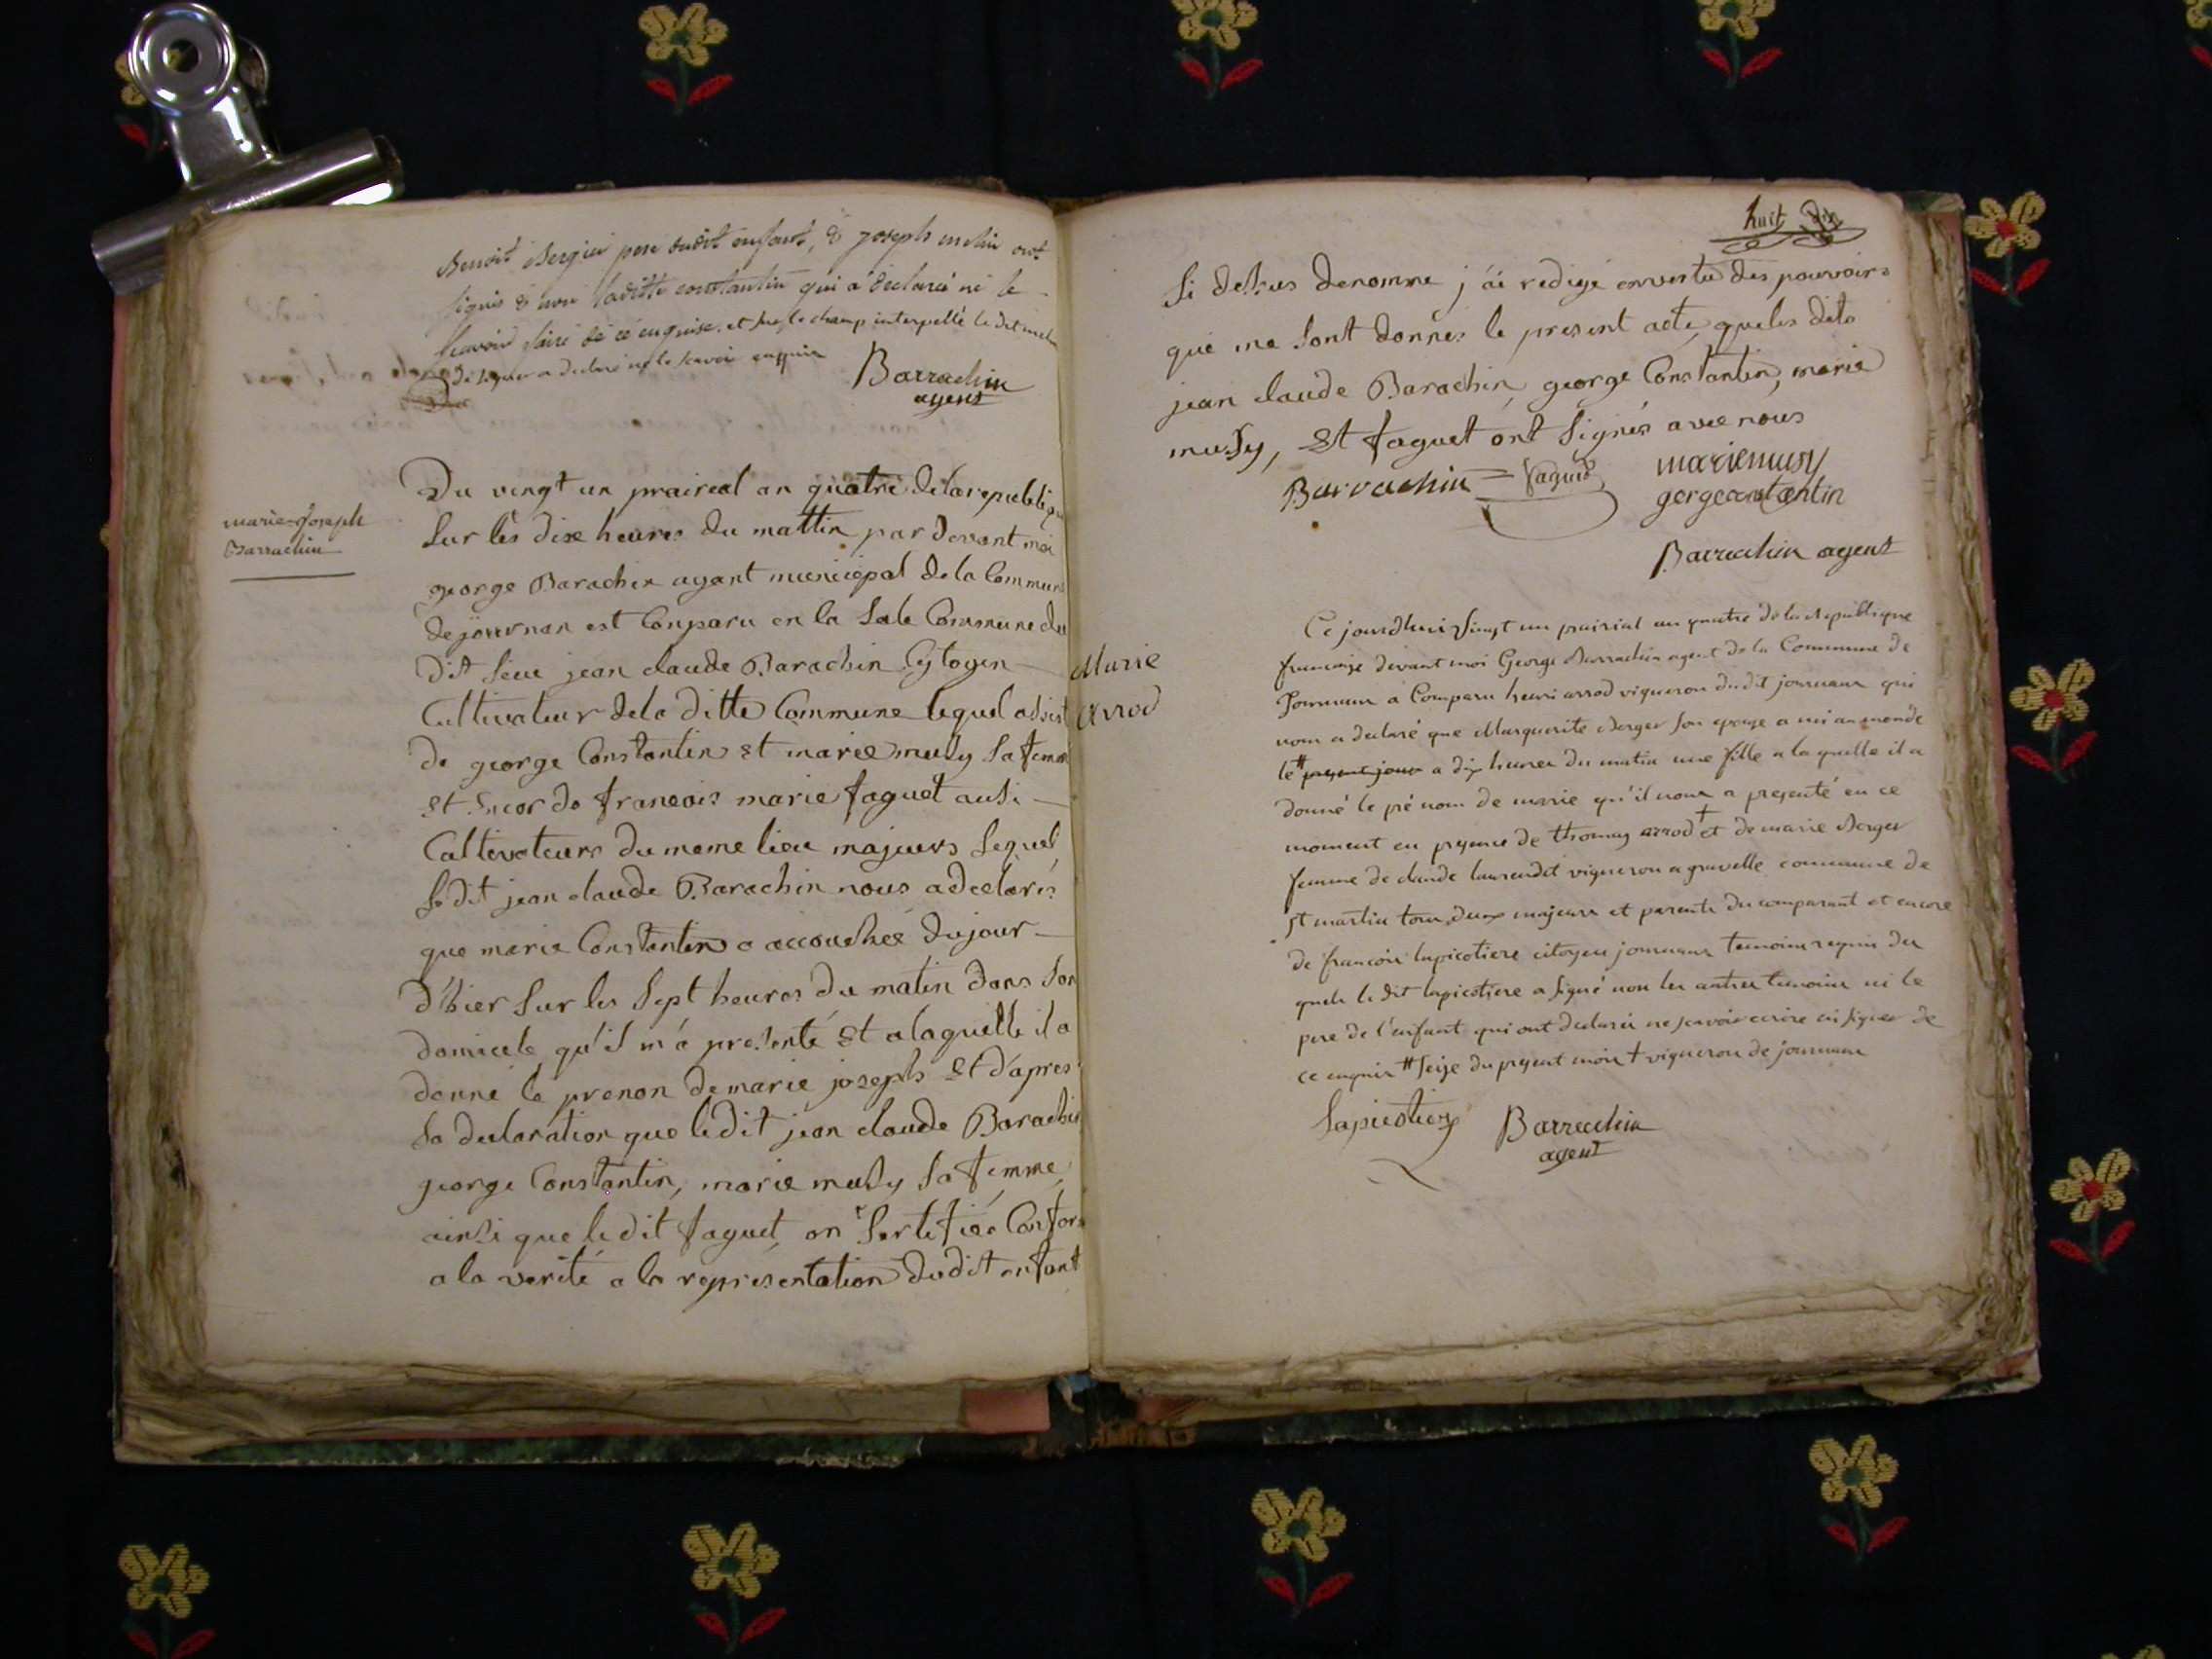 Benoit Bergier pere dudit enfant, & joseph melin ont
signés & non laditte constantin qui a déclaré ne le
scavoir faire de ce enquise. et sur le champ interpellé le dit melin
de signer a declaré ne le scavoir enquis
Barrachin
agent
marie joseph
Barrachin
Du vingt un praireal an quatre de la republique
sur les dixe heures du mattin par devant moi
george Barachin agant municipal de la Commune
de journan est Conparu en la sale Commune du
dit lieu jean claude Barachin Cytoyen
Cultivateur de la ditte Commune lequel assist
de george Constantin et marie musy sa femme
et encor de francois marie faguet ausi
Cultivateurs du meme lieu majeurs lequel
ledit jean claude Barachin nous a declarés
que marie Constantin a accouchée du jour
d'hier sur les sept heures du matin dans son
domicile qu'il m'a presenté et a laquelle il a
donné le prenon de marie joseph et d'apres
la declaration que ledit jean claude Barachin
george Constantin, marie musy sa femme,
ainsi que ledit faguet, on sertifiés Confor
a la verité a la representation dudit enfant
huit
si desus denomme j'ai redigé en vertu des pouvoirs
qui me sont donnés le present acte, queles dits
jean claude Barachin, george Constantin, marie
musy, et faguet ont signés avec nous
Barrachin = faguet mariemusy
gorgeconstantin
Barrachin agent
Marie
Arrod
Ce jourdhui vingt un prairial an quatre de la republique
francaise devant moi George Barrachin agent de la Commune de
Journan a Comparu henri arrod vigneron dudit journan qui
nous a declaré que Marguerite Berger son epouse a mi au monde
le # present jour a dix heures du matin une fille a la quelle il a
donné le pré nom de marie qu'il nous a presenté en ce
moment en presence de thomas arrod + et de marie Berger
femme de claude laurendet vigneron a gravelle commune de
st martin tous deux majeurs et parents du comparant et encore
de francois lapicotiere citoyen journans temoins requis du
quels le dit lapicotiere a signé non les autres temoins ni le
pere de l'enfant qui ont declaré ne scavoir ecrire ni signer de
ce enquis # seize du present mois + vigneron de journan
Lapicotiere Barrachin
agent